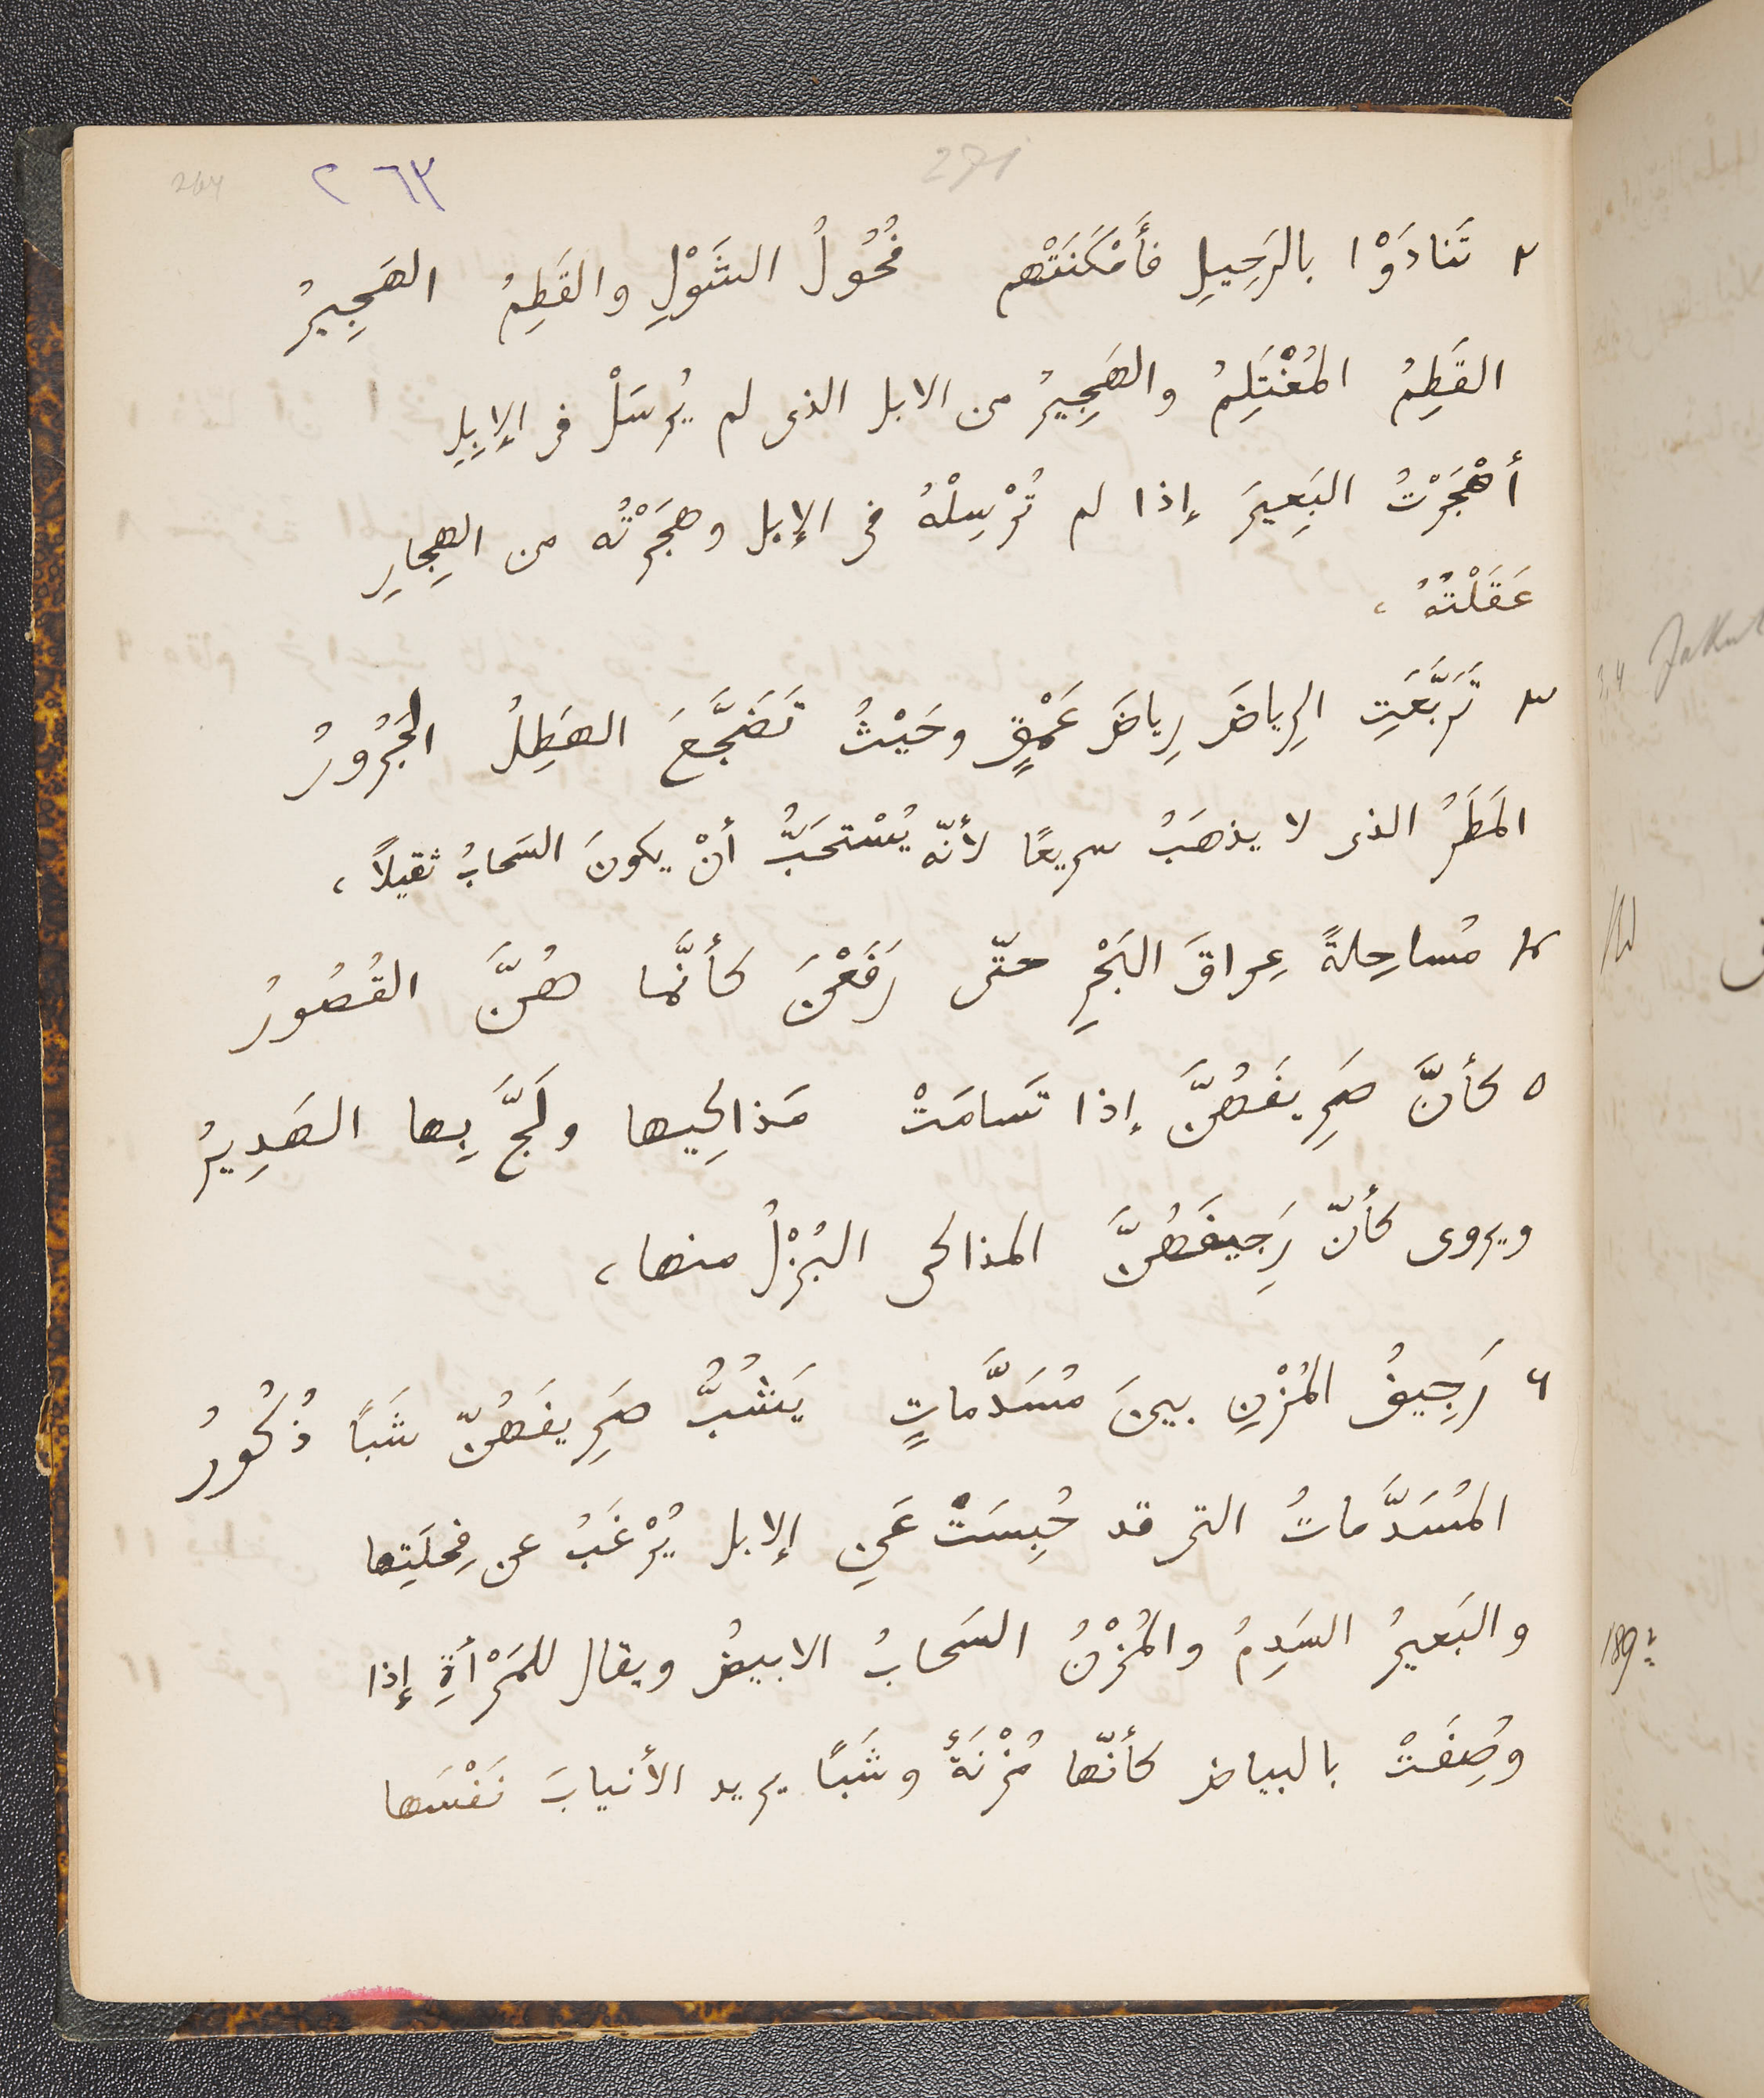 271
٢٦٣
264
٢ تَنادَوْا بالرَحِيلِ فأَمْكَنَتْهم فُحُولُ الشَوْلِ والقَطِمُ الهَجِيرُ
القَطِمُ المُغْتَلِمُ والهَجِيرُ من الابل الذى لم يُرسَلْ فى الإبِلِ
أهْجَرْتُ البَعِيرَ إذا لم تُرْسِلْهُ فى الإبل وهجَرْتُه من الهِجارِ
عَقَلْتُهُ ،
٣ تَرَبَّعَتِ الرِياضَ رِياضَ عَمْقٍ وحَيْثُ تَضَجَّعَ الهَطِلُ الجَرُورُ
المَطَرُ الذى لا يذهَبُ سريعًا لأنّه يُسْتحَبُّ أنْ يكونَ السَحابُ ثقيلًا ،
٤ مُساحِلةً عِراقَ البَحْرِ حتّى رَفَعْنَ كأنَّما هُنَّ القُصُورُ
٥ كأنَّ صَرِيفَهُنَّ إذا تَسامَتْ مَذاكِيها ولَجَّ بِها الهَدِيرُ
ويروى كأنّ رَجِيفَهُنَّ المذاكى البُزْلُ منها ،
٦ رَجِيفُ المُزْنِ بينَ مُسَدَّماتٍ يَشُبُّ صَرِيفَهُنّ شَبًا ذُكُورُ
المُسَدَّماتُ التى قد حُبِسَتْ عَنِ الإبل يُرْغَبُ عن فِحلَتِها
والبَعيرُ السَدِمُ والمُزْنُ السَحابُ الابيضُ ويقال للمَرْأةِ إذا
وُصِفَتْ بالبياض كأنّها مُزْنَةٌ وشَبًا يريد الأنيابَ نَفْسَها
189